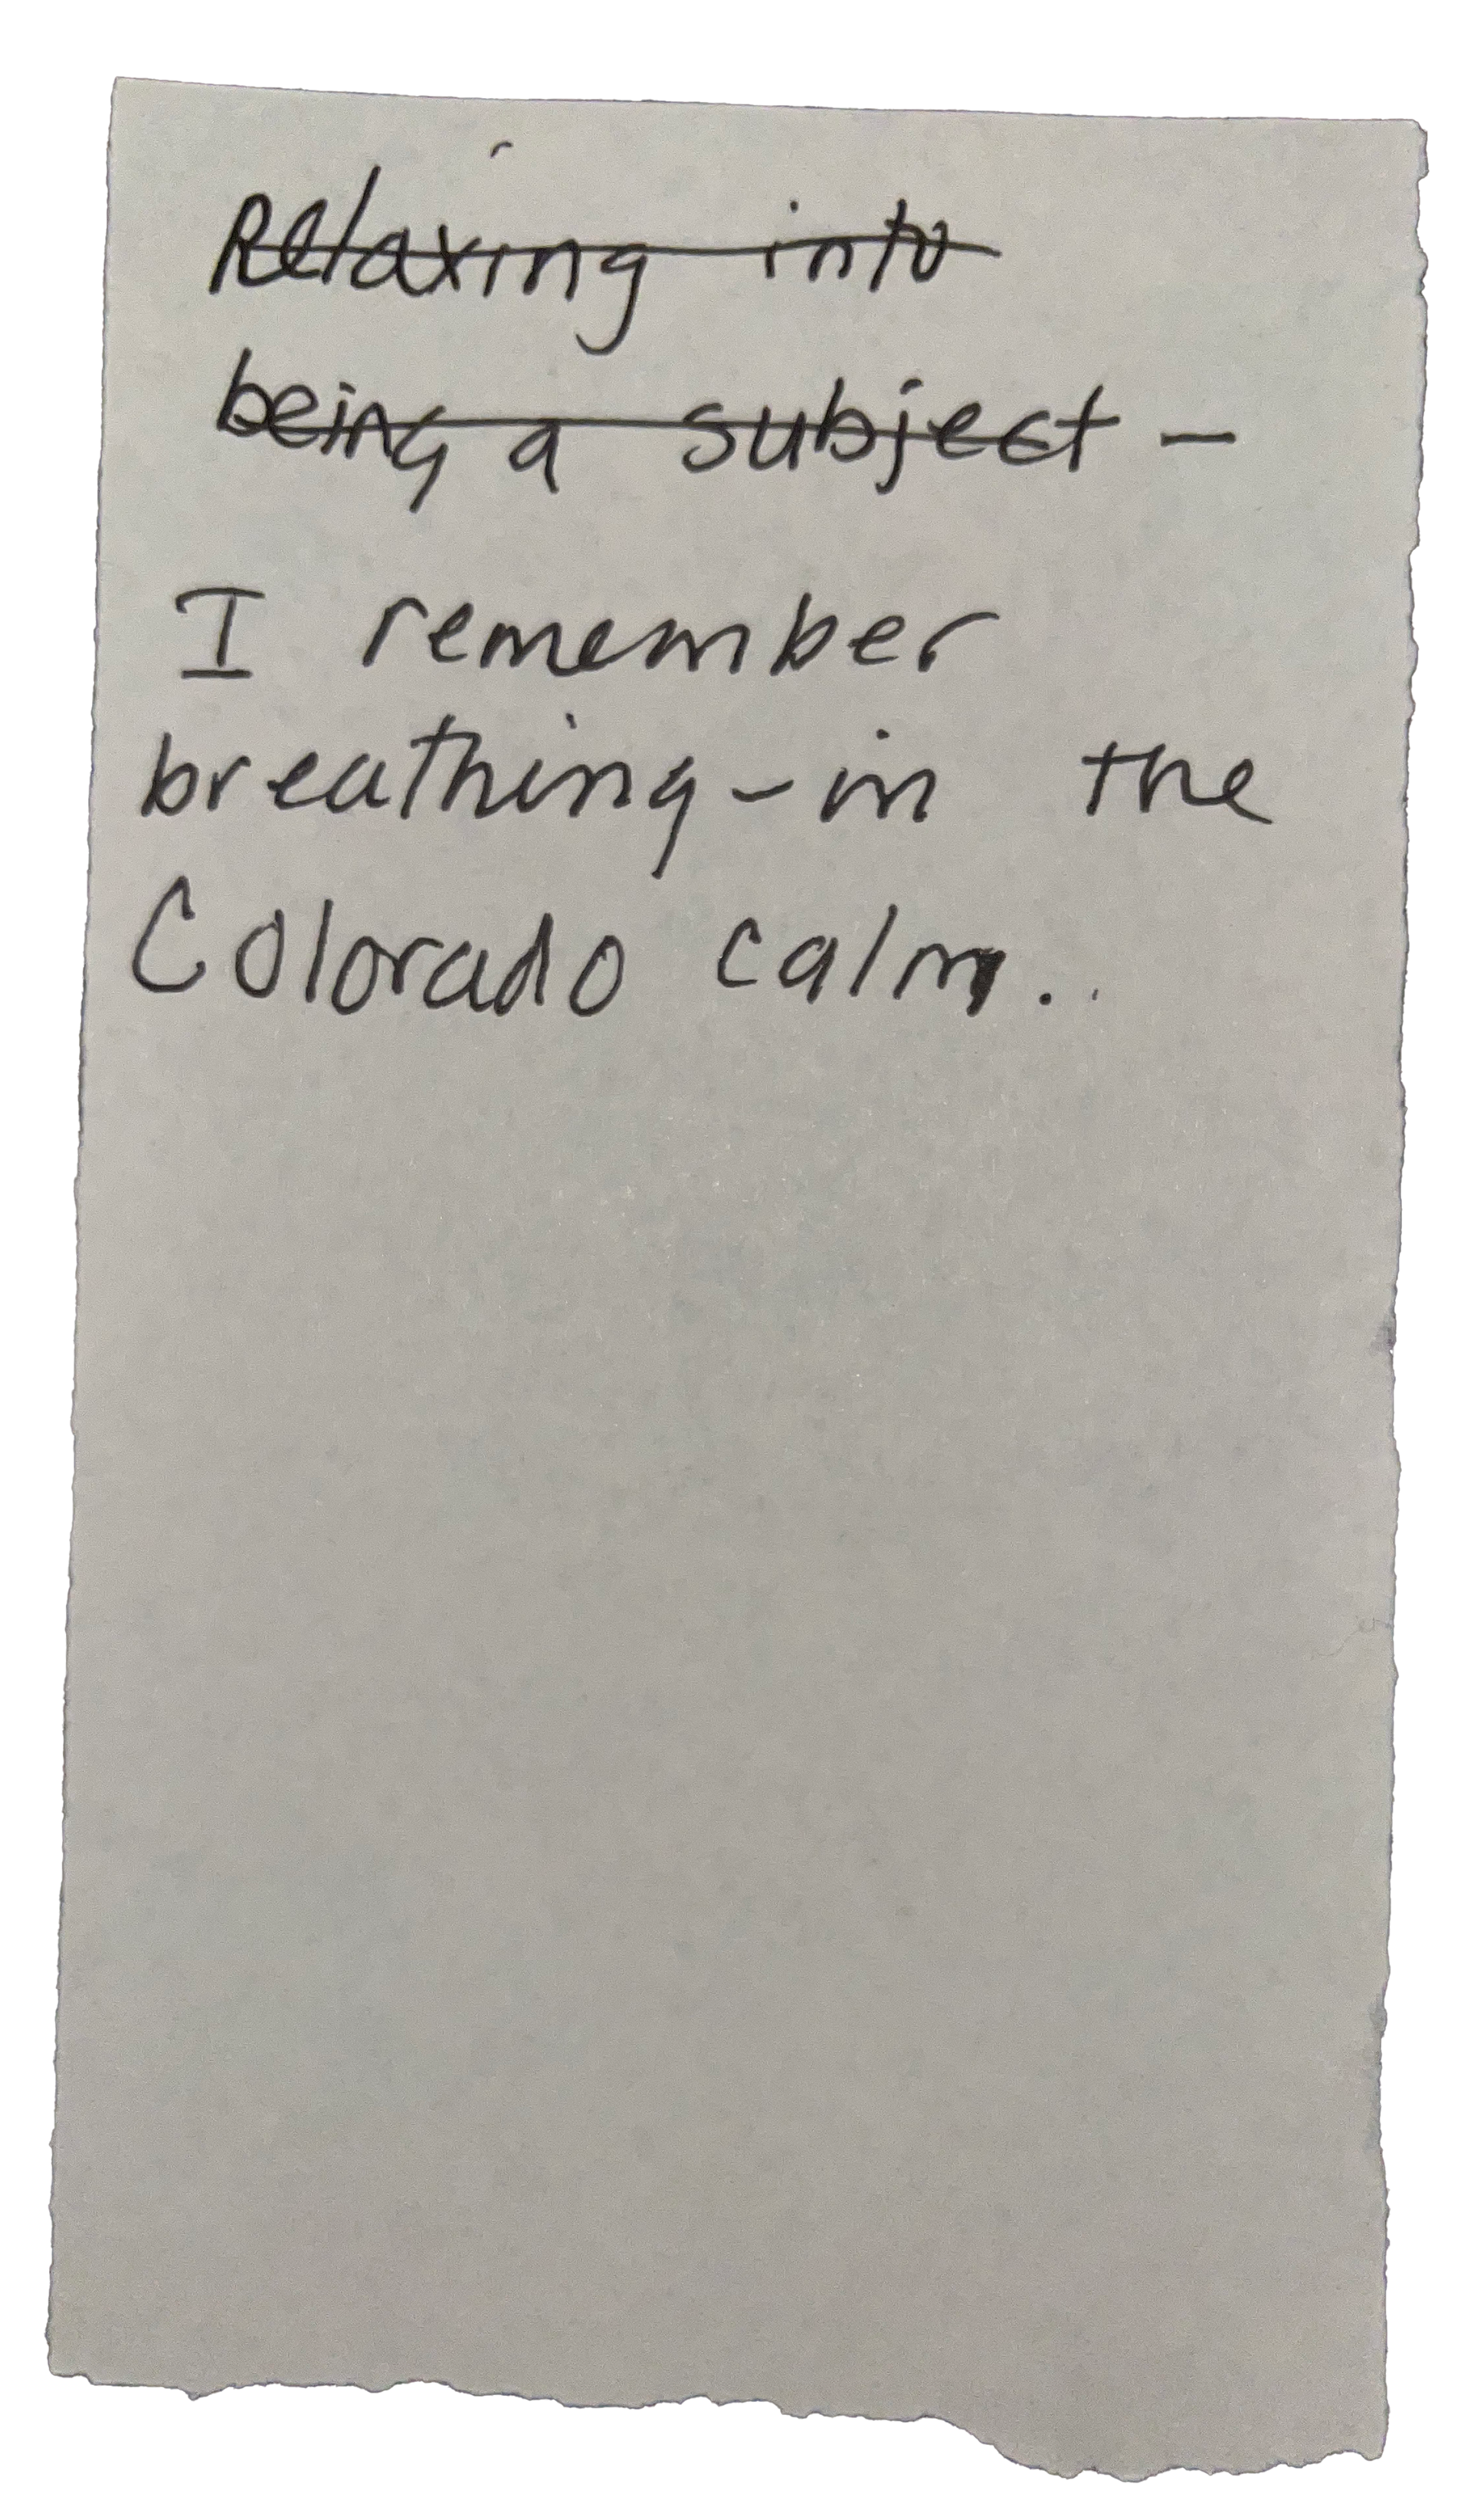 Relaxing into
being a subject –
I remember
breathing-in the
Colorado calm..